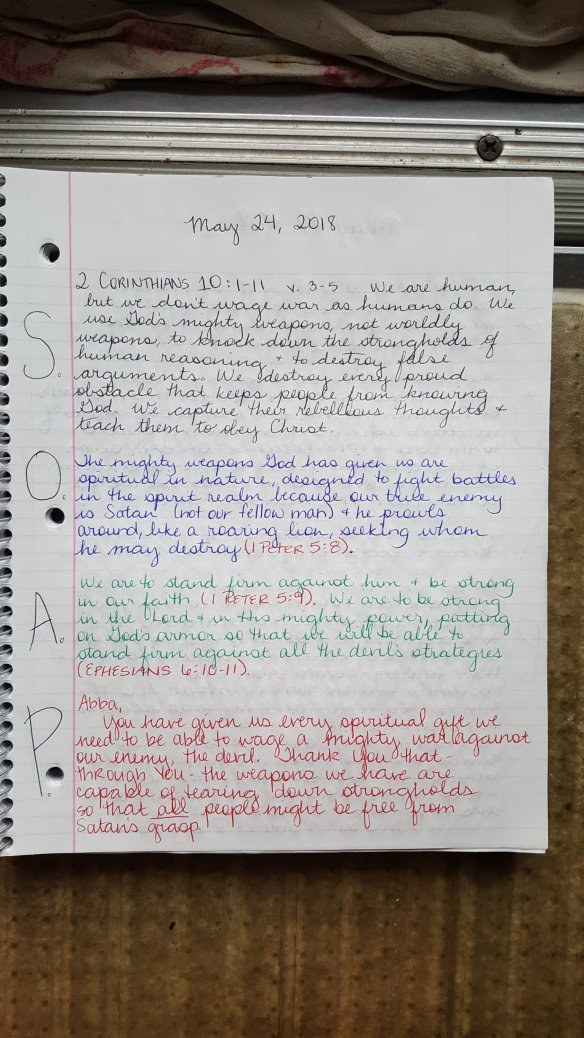 May 24, 2018
S.
2 CORINTHIANS 10:1-11 v. 3-5 We are human,
but we don't wage war as humans do. We
use God's mighty weapons, not worldly
weapons, to knock down the strongholds of
human reasoning + to destroy false
arguments. We destroy every proud
obstacle that keeps people from knowing
God. We capture their rebellious thoughts +
teach them to obey Christ.
O.
The mighty weapons God has given us are
spiritual in nature, designed to fight battles
in the spirit realm because our true enemy
is Satan (not our fellow man) + he prowls
around, like a roaring lion, seeking whom
he may destroy (1 PETER 5:8).
A.
We are to stand firm against him + be strong
in our faith (1 PETER 5:9). We are to be strong
in the Lord + in His mighty power, putting
on God's armor so that we will be able to
stand firm against all the devil's strategies
(EPHESIANS 6:10-11).
P.
Abba,
You have given us every spiritual gift we
need to be able to wage a mighty war against
our enemy, the devil. Thank You that -
through You - the weapons we have are
capable of tearing down strongholds
so that all people might be free from
Satan's grasp.